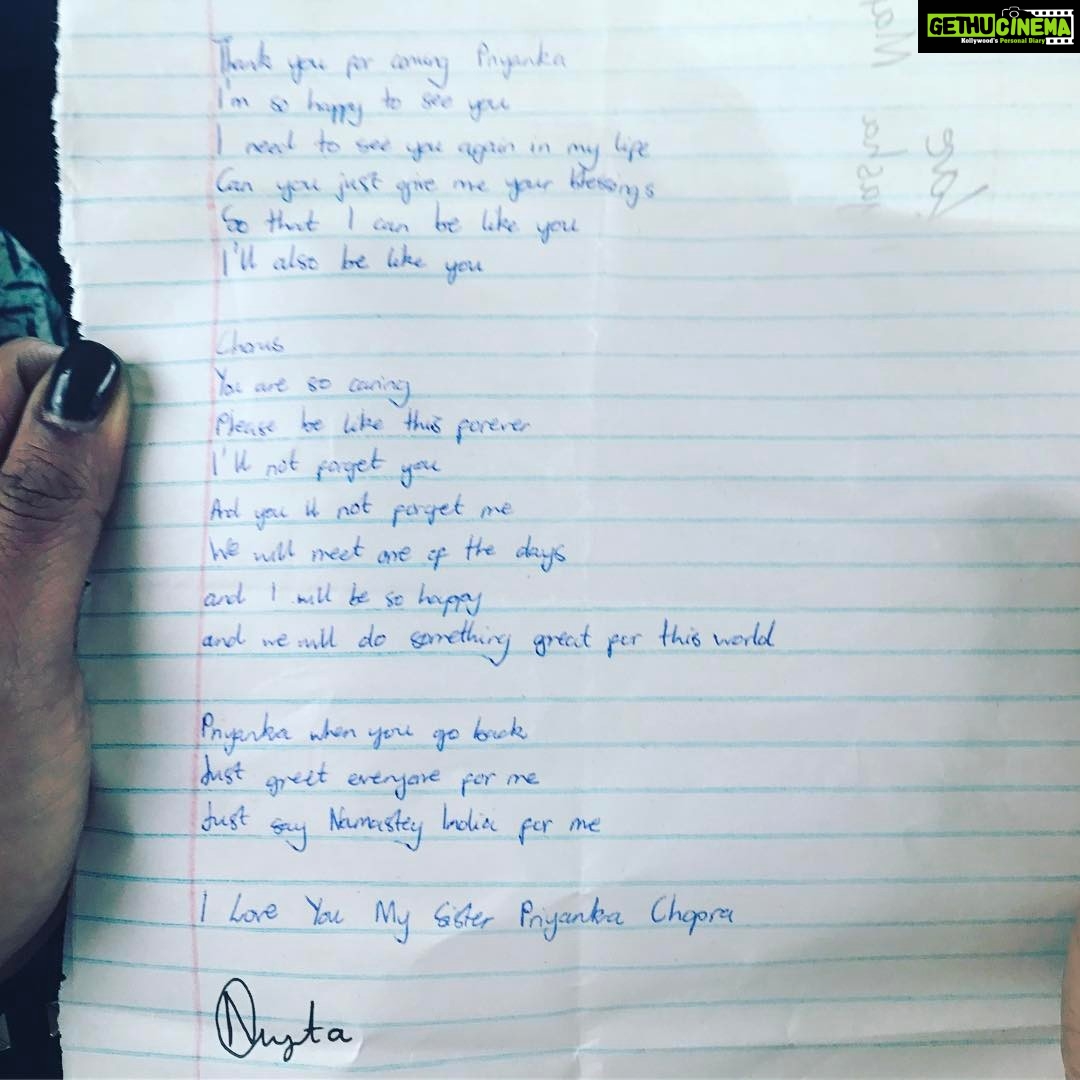 GETHUCINEMA
Kollywood's Personal Diary
Thank you for coming Priyanka
I'm so happy to see you
I need to see you again in my life
Can you just give me your blessings
So that I can be like you
I'll also be like you
Chorus
You are so caring
Please be like this forever
I'll not forget you
And you ll not forget me
We will meet one of the days
and I will be so happy
and we will do something great for this world
Priyanka when you go back
Just greet everyone for me
Just say Namastey India for me
I Love You My Sister Priyanka Chopra